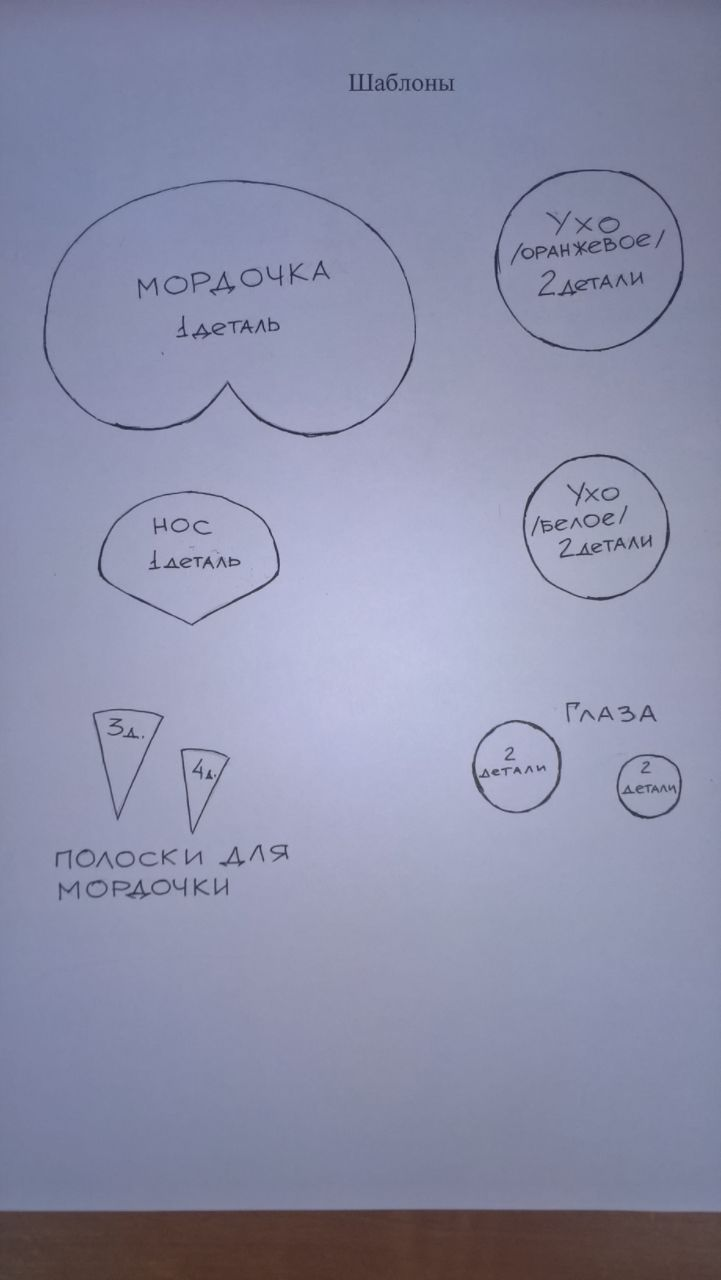 Шаблоны
МОРДОЧКА
1 деталь
Ухо
/оранжевое/
2 детали
НОС
1 деталь
Ухо
/белое/
2 детали
3д.
4д.
ПОЛОСКИ ДЛЯ
МОРДОЧКИ
Глаза
2
детали
2
детали